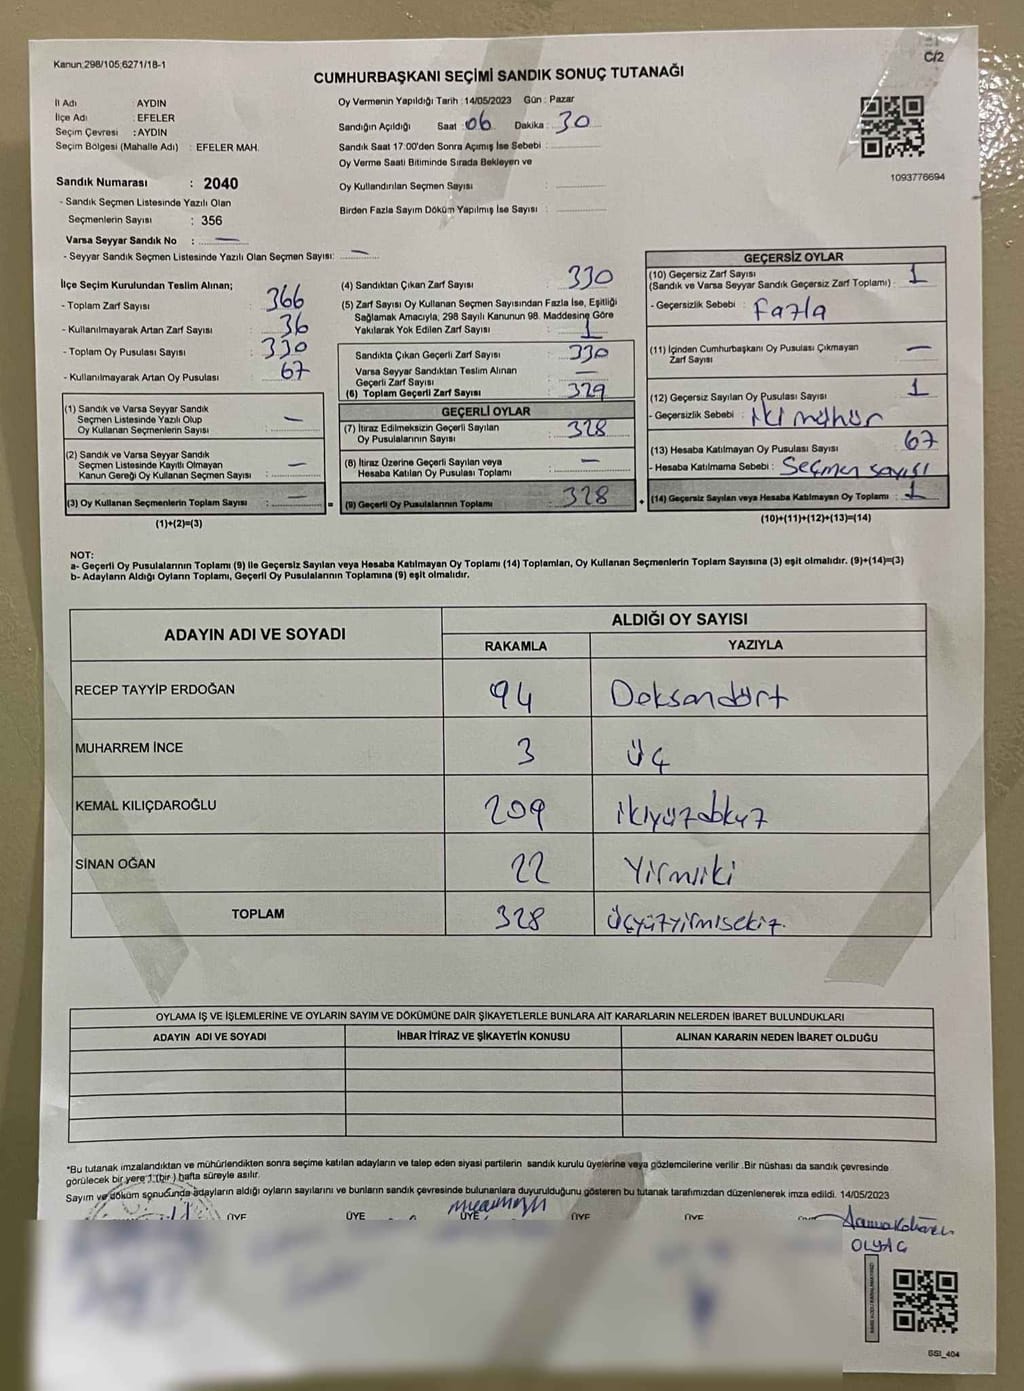 Kanun:298/105,6271/18-1
C/2
CUMHURBAŞKANI SEÇİMİ SANDIK SONUÇ TUTANAĞI
İl Adı AYDIN
İlçe Adı : EFELER
Seçim Çevresi : AYDIN
Seçim Bölgesi (Mahalle Adı) : EFELER MAH.
Sandık Numarası : 2040
- Sandık Seçmen Listesinde Yazılı Olan
Seçmenlerin Sayısı : 356
Varsa Seyyar Sandık No : —
- Seyyar Sandık Seçmen Listesinde Yazılı Olan Seçmen Sayısı: —
Oy Vermenin Yapıldığı Tarih : 14/05/2023 Gün : Pazar
Sandığın Açıldığı Saat : 06 Dakika : 30
Sandık Saat 17:00'den Sonra Açımış İse Sebebi :
Oy Verme Saati Bitiminde Sırada Bekleyen ve
Oy Kullandırılan Seçmen Sayısı :
Birden Fazla Sayım Döküm Yapılmış İse Sayısı :
1093776694
İlçe Seçim Kurulundan Teslim Alınan;
- Toplam Zarf Sayısı : 366
- Kullanılmayarak Artan Zarf Sayısı : 36
- Toplam Oy Pusulası Sayısı : 330
- Kullanılmayarak Artan Oy Pusulası : 67
(1) Sandık ve Varsa Seyyar Sandık
Seçmen Listesinde Yazılı Olup
Oy Kullanan Seçmenlerin Sayısı : —
(2) Sandık ve Varsa Seyyar Sandık
Seçmen Listesinde Kayıtlı Olmayan
Kanun Gereği Oy Kullanan Seçmen Sayısı : —
(3) Oy Kullanan Seçmenlerin Toplam Sayısı : —
(1)+(2)=(3)
(4) Sandıktan Çıkan Zarf Sayısı : 330
(5) Zarf Sayısı Oy Kullanan Seçmen Sayısından Fazla İse, Eşitliği
Sağlamak Amacıyla, 298 Sayılı Kanunun 98. Maddesine Göre
Yakılarak Yok Edilen Zarf Sayısı : 1
Sandıkta Çıkan Geçerli Zarf Sayısı : 330
Varsa Seyyar Sandıktan Teslim Alınan
Geçerli Zarf Sayısı : —
(6) Toplam Geçerli Zarf Sayısı : 329
GEÇERLİ OYLAR
(7) İtiraz Edilmeksizin Geçerli Sayılan
Oy Pusulalarının Sayısı : 328
(8) İtiraz Üzerine Geçerli Sayılan veya
Hesaba Katılan Oy Pusulası Toplamı : —
= (9) Geçerli Oy Pusulalarının Toplamı : 328
GEÇERSİZ OYLAR
(10) Geçersiz Zarf Sayısı
(Sandık ve Varsa Seyyar Sandık Geçersiz Zarf Toplamı) : 1
- Geçersizlik Sebebi : Fazla
(11) İçinden Cumhurbaşkanı Oy Pusulası Çıkmayan
Zarf Sayısı : —
(12) Geçersiz Sayılan Oy Pusulası Sayısı : 1
- Geçersizlik Sebebi : iki mühür
(13) Hesaba Katılmayan Oy Pusulası Sayısı : 67
- Hesaba Katılmama Sebebi : Seçmen sayısı
+ (14) Geçersiz Sayılan veya Hesaba Katılmayan Oy Toplamı : 1
(10)+(11)+(12)+(13)=(14)
NOT:
a- Geçerli Oy Pusulalarının Toplamı (9) ile Geçersiz Sayılan veya Hesaba Katılmayan Oy Toplamı (14) Toplamları, Oy Kullanan Seçmenlerin Toplam Sayısına (3) eşit olmalıdır. (9)+(14)=(3)
b- Adayların Aldığı Oyların Toplamı, Geçerli Oy Pusulalarının Toplamına (9) eşit olmalıdır.
ADAYIN ADI VE SOYADI
ALDIĞI OY SAYISI
RAKAMLA YAZIYLA
RECEP TAYYİP ERDOĞAN 94 Doksandört
MUHARREM İNCE 3 Üç
KEMAL KILIÇDAROĞLU 209 ikiyüzdokuz
SİNAN OĞAN 22 Yirmiiki
TOPLAM 328 üçyüzyirmisekiz.
OYLAMA İŞ VE İŞLEMLERİNE VE OYLARIN SAYIM VE DÖKÜMÜNE DAİR ŞİKAYETLERLE BUNLARA AİT KARARLARIN NELERDEN İBARET BULUNDUKLARI
ADAYIN ADI VE SOYADI İHBAR İTİRAZ VE ŞİKAYETİN KONUSU ALINAN KARARIN NEDEN İBARET OLDUĞU
*Bu tutanak imzalandıktan ve mühürlendikten sonra seçime katılan adayların ve talep eden siyasi partilerin sandık kurulu üyelerine veya gözlemcilerine verilir .Bir nüshası da sandık çevresinde
görülecek bir yere 1 (bir ) hafta süreyle asılır.
Sayım ve döküm sonucunda adayların aldığı oyların sayılarını ve bunların sandık çevresinde bulunanlara duyurulduğunu gösteren bu tutanak tarafımızdan düzenlenerek imza edildi. 14/05/2023
ÜYE ÜYE ÜYE ÜYE ÜYE
OLYAÇ
SSI_404